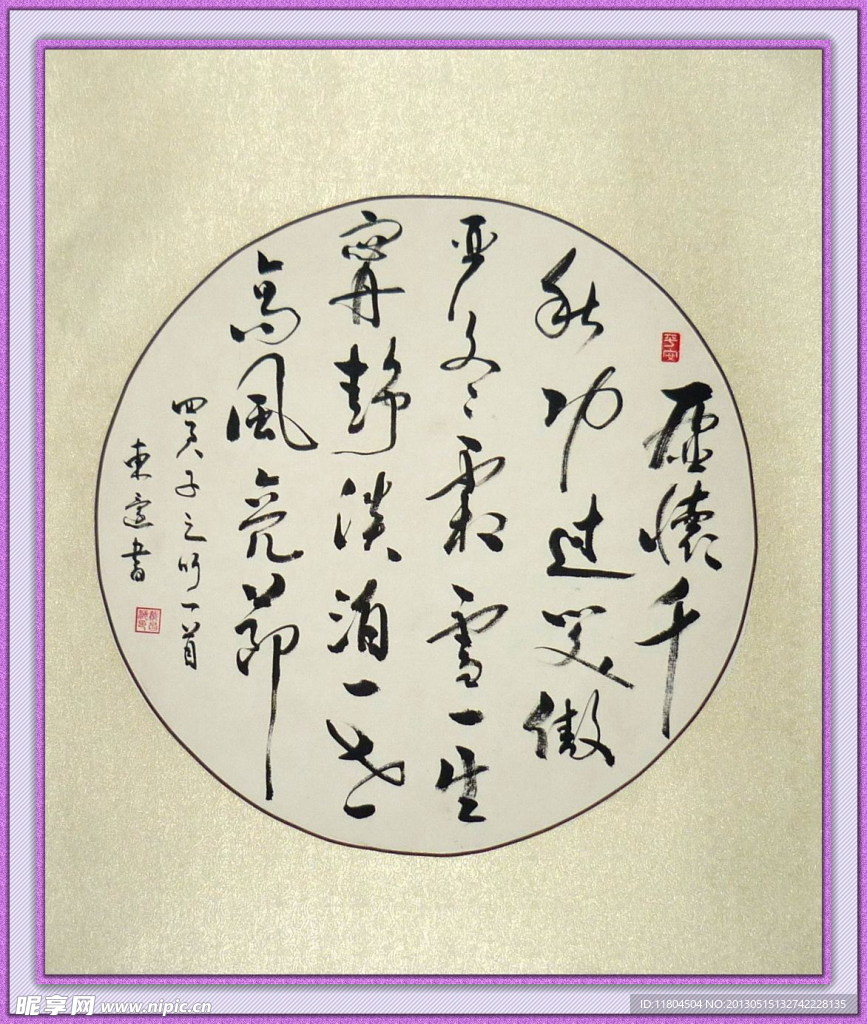 虚懷千
秋功过笑傲
严冬霜雪一生
寧静淡泊一世
高風亮節
四君子之竹一首
東書
昵享网 www.nipic.cn
ID:11804504 NO:20130515132742228135